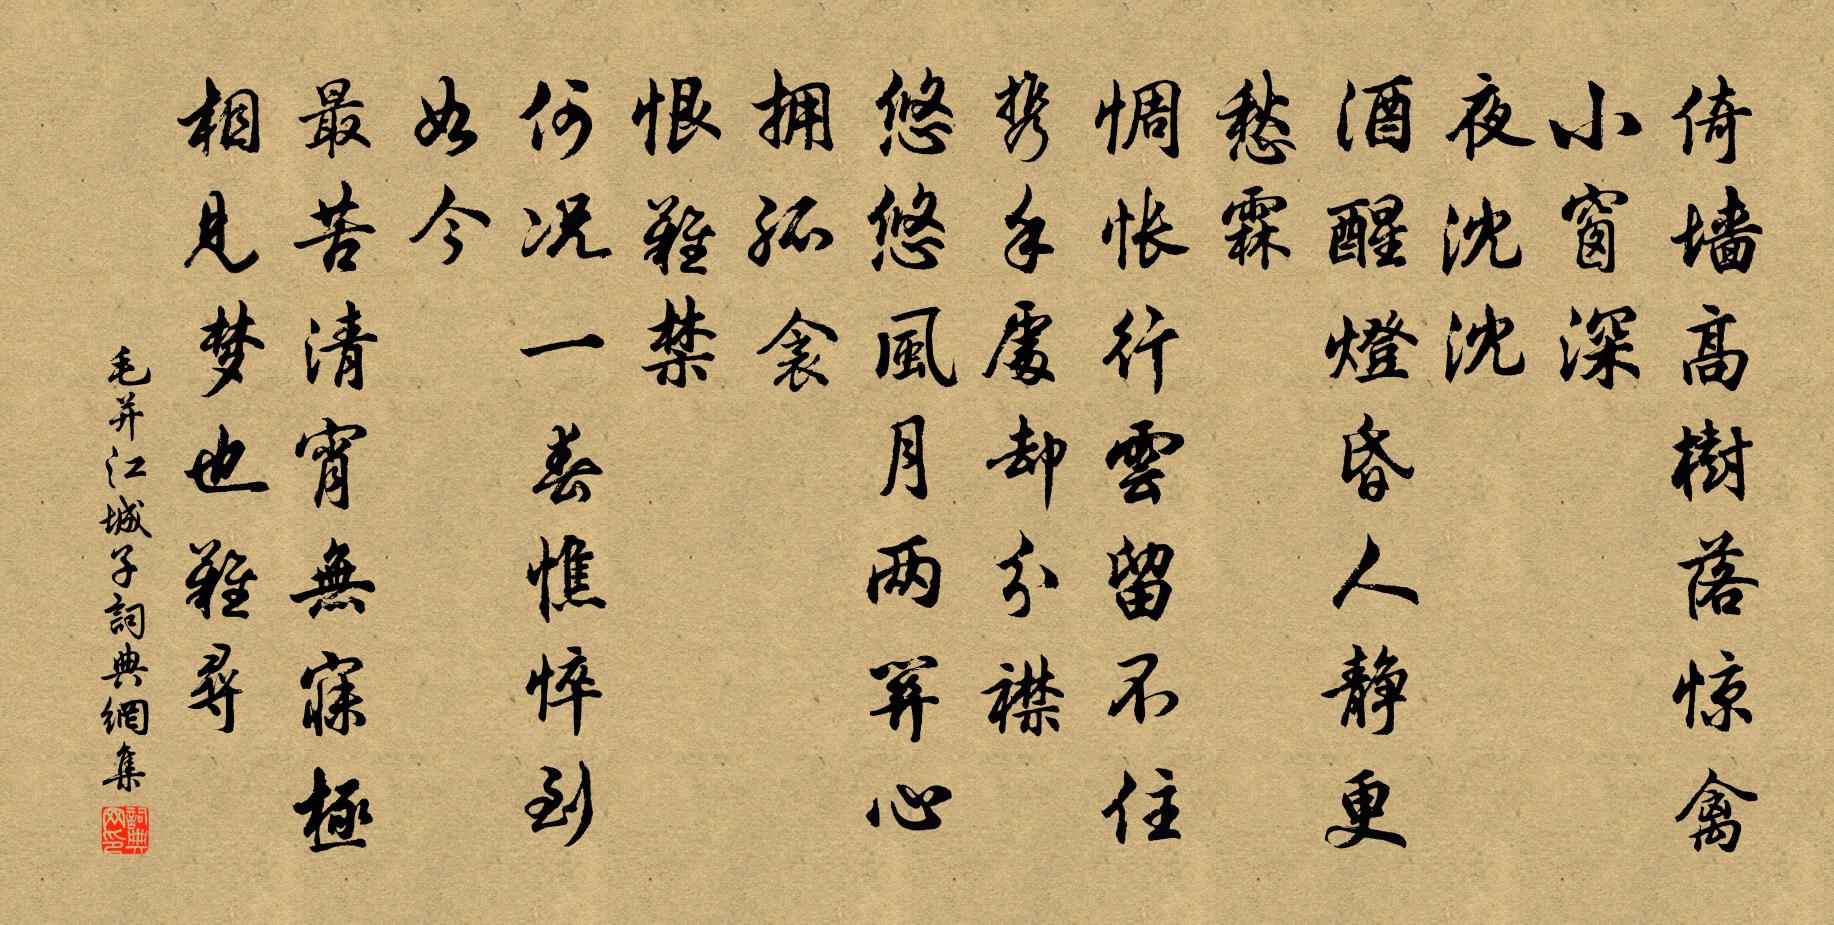 倚墙高樹落惊禽
小窗深
夜沈沈
酒醒燈昏人静更
愁霖
惆怅行雲留不住
携手處却分襟
悠悠風月两関心
拥孤衾
恨難禁
何况一春憔悴到
如今
最苦清宵無寐極
相見梦也難尋
毛幵江城子詞典網集
詞典网印